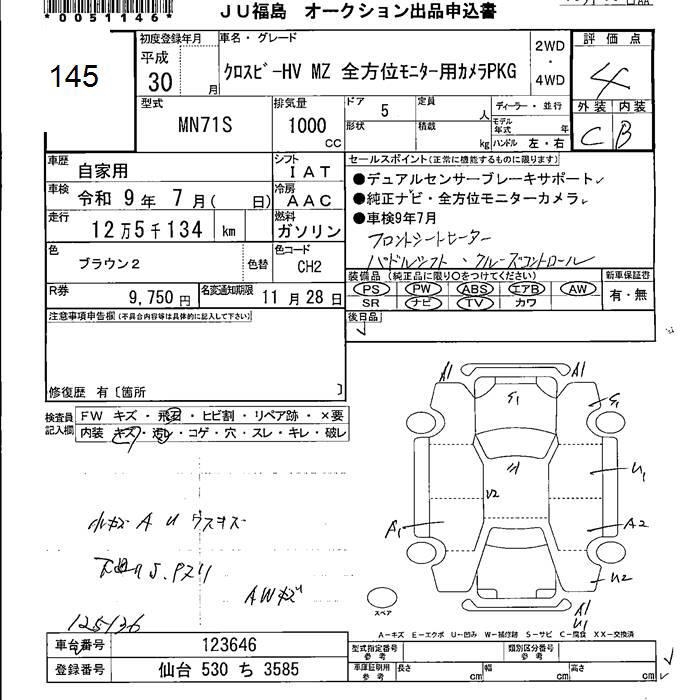 *0051146*
JU福島 オークション出品申込書
145
初度登録年月
平成
30 月
車名・グレード
クロスビーHV MZ 全方位モニター用カメラPKG
2WD
・
4WD
評価点
4
外装 内装
C B
型式
MN71S
排気量
1000 cc
ドア 5
定員 人
形状
積載 kg
ディーラー・並行
モデル年式 年
ハンドル 左・右
車歴
自家用
シフト
IAT
車検
令和 9年 7月( 日)
冷房
AAC
走行
12万5千134 km
燃料
ガソリン
色
ブラウン2
色替
色コード
CH2
R券
9,750円
名変通知期限 11月28日
セールスポイント(正常に機能するものに限ります)
●デュアルセンサーブレーキサポート
●純正ナビ・全方位モニターカメラ
●車検9年7月
フロントシートヒーター
パドルシフト、クルーズコントロール
装備品(純正品に限り○をつけてください)
PS PW ABS エアB AW
SR ナビ TV カワ
新車保証書
有・無
後日品
注意事項申告欄(不具合内容等は具体的に記入して下さい)
修復歴 有〔箇所 〕
検査員記入欄
FW キズ・飛石・ヒビ割・リペア跡・×要
内装 キズ・汚レ・コゲ・穴・スレ・キレ・破レ
小キズ A U ウスキズ
下廻りS.Pスリ
AWキズ
125136
A1 A1
E1
E1
U1
U2
A1
A2
U2
A1
U1
スペア
A-キズ E-エクボ U-凹み W-補修跡 S-サビ C-腐食 XX-交換済
車台番号 123646
登録番号 仙台 530 ち 3585
型式指定番号 参考
類別区分番号 参考
車庫証明用 参考 長さ cm 幅 cm 高さ cm